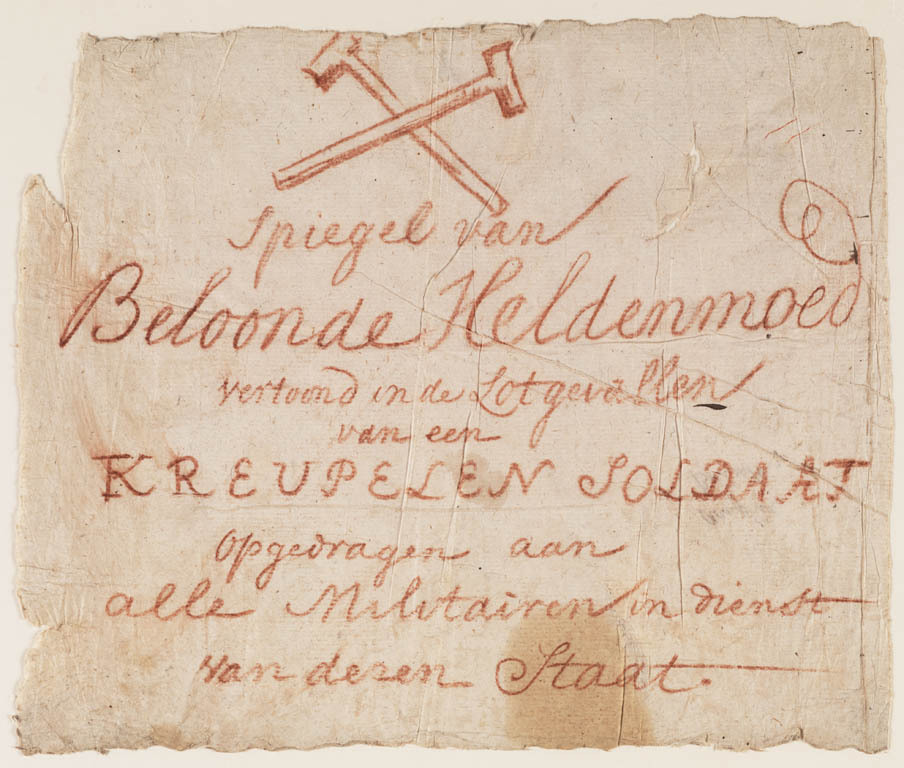 Spiegel van
Beloonde Heldenmoed
vertoond in de Lotgevallen
van een
KREUPELEN SOLDAAT
Opgedragen aan
alle Militairen in dienst
van dezen Staat.